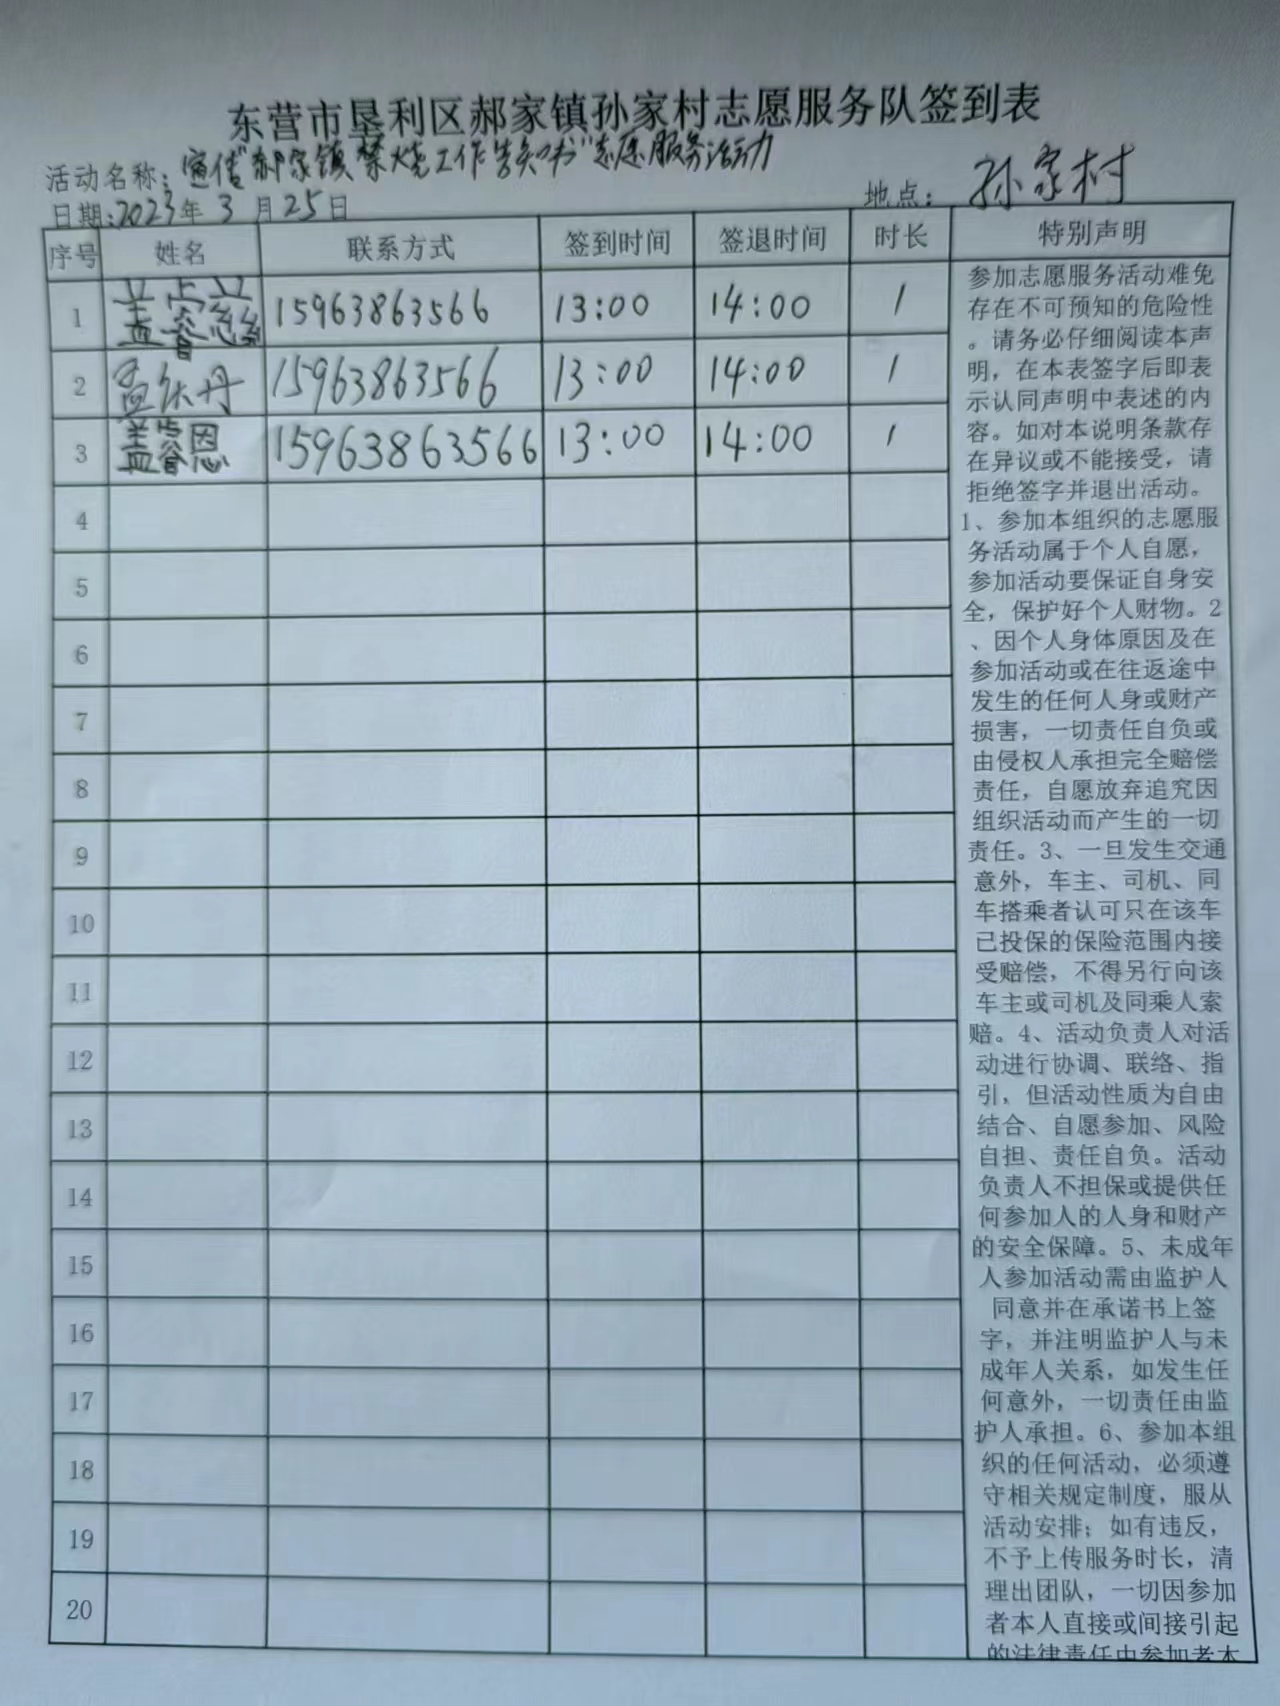 东营市垦利区郝家镇孙家村志愿服务队签到表
活动名称：宣传"郝家镇禁烧工作告知书"志愿服务活动
日期：2023年3月25日 地点：孙家村
序号 姓名 联系方式 签到时间 签退时间 时长 特别声明
1 盖睿 15963863566 13:00 14:00 1
2 孟 丹 15963863566 13:00 14:00 1
3 盖睿恩 15963863566 13:00 14:00 1
4
5
6
7
8
9
10
11
12
13
14
15
16
17
18
19
20
参加志愿服务活动难免
存在不可预知的危险性
。请务必仔细阅读本声
明，在本表签字后即表
示认同声明中表述的内
容。如对本说明条款存
在异议或不能接受，请
拒绝签字并退出活动。
1、参加本组织的志愿服
务活动属于个人自愿，
参加活动要保证自身安
全，保护好个人财物。2
、因个人身体原因及在
参加活动或在往返途中
发生的任何人身或财产
损害，一切责任自负或
由侵权人承担完全赔偿
责任，自愿放弃追究因
组织活动而产生的一切
责任。3、一旦发生交通
意外，车主、司机、同
车搭乘者认可只在该车
已投保的保险范围内接
受赔偿，不得另行向该
车主或司机及同乘人索
赔。4、活动负责人对活
动进行协调、联络、指
引，但活动性质为自由
结合、自愿参加、风险
自担、责任自负。活动
负责人不担保或提供任
何参加人的人身和财产
的安全保障。5、未成年
人参加活动需由监护人
同意并在承诺书上签
字，并注明监护人与未
成年人关系，如发生任
何意外，一切责任由监
护人承担。6、参加本组
织的任何活动，必须遵
守相关规定制度，服从
活动安排；如有违反，
不予上传服务时长，清
理出团队，一切因参加
者本人直接或间接引起
的法律责任由参加者本